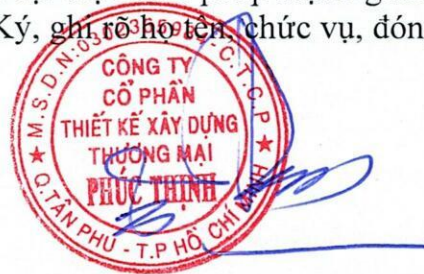 Ký, ghi rõ họ tên, chức vụ, đón
M.S.D.N:
C.T.C.P
CÔNG TY
CỔ PHẦN
THIẾT KẾ XÂY DỰNG
THƯƠNG MẠI
PHÚC THỊNH
Q.TÂN PHÚ - T.P HỒ CHÍ MINH